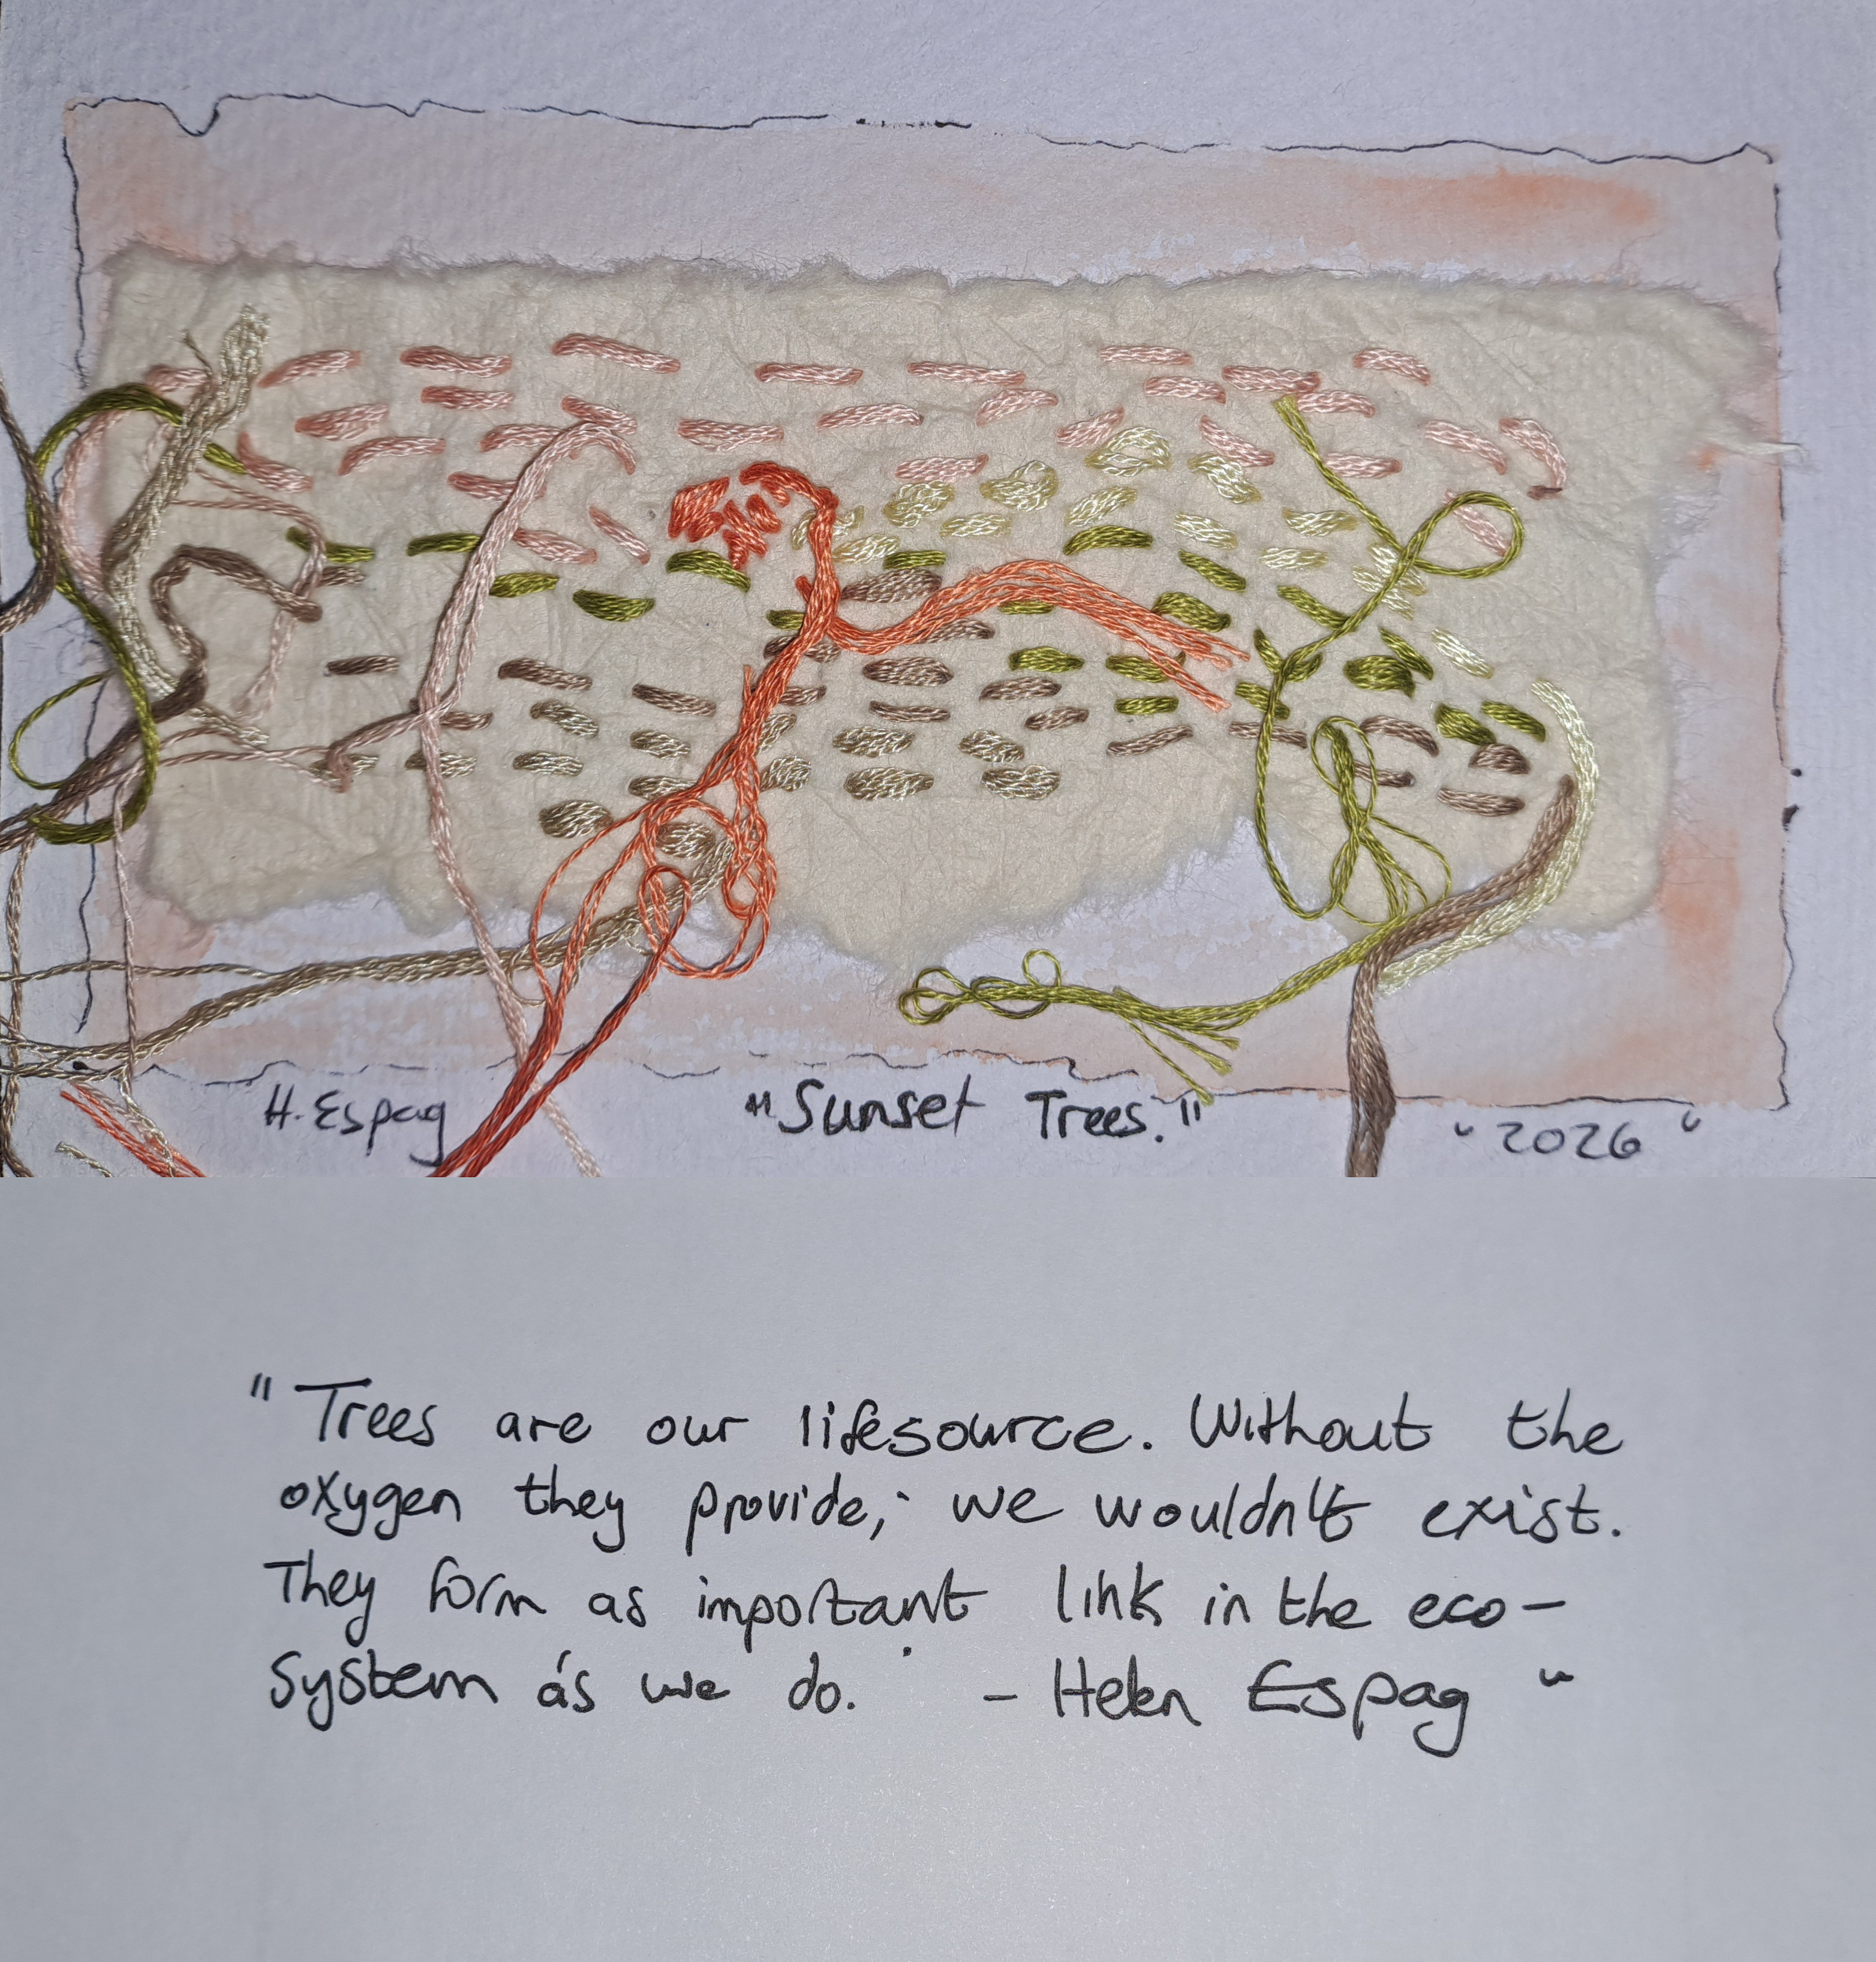 H. Espag
"Sunset Trees."
"2026"
"Trees are our lifesource. Without the
oxygen they provide, we wouldn't exist.
They form as important link in the eco-
system as we do. - Helen Espag"